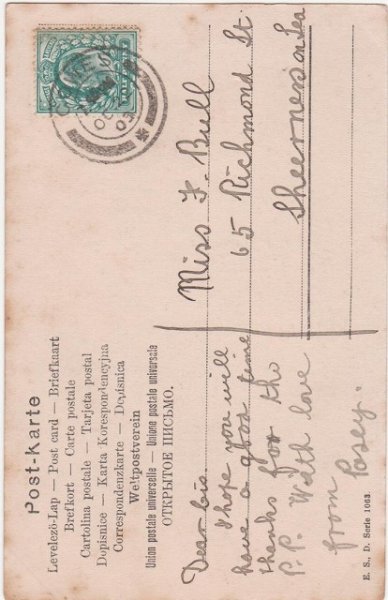 Post-karte
Levelező-Lap — Post card — Briefkaart
Brefkort — Carte postale
Cartolina postale — Tarjeta postal
Dopisnice — Karta Korespondencyjna
Correspondenzkarte — Dopisnica
Weltpostverein
Union postale universelle — Unione postale universale
ОТКРЫТОЕ ПИСЬМО.
Dear Sis
I hope you will
have a good time
thanks for the
P. P. With love
from Posey.
Miss F. Bull
65 Richmond St
Sheerness on Sea
E. S., D. Serie 1063.
03